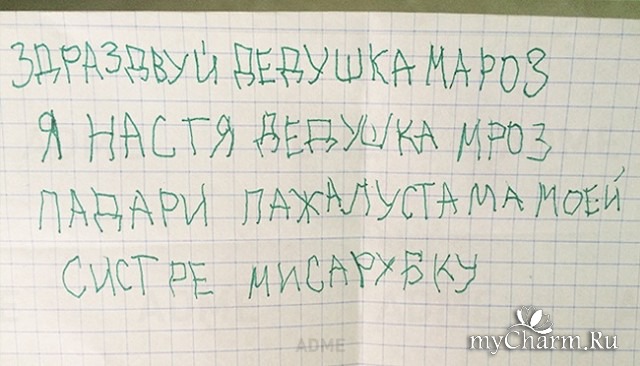 ЗДРАЗДВУЙ ДЕДУШКА МАРОЗ
Я НАСТЯ ДЕДУШКА МРОЗ
ПАДАРИ ПАЖАЛУСТА МА МОЕЙ
СИСТРЕ МИСАРУБКУ
ADME
myCharm.Ru